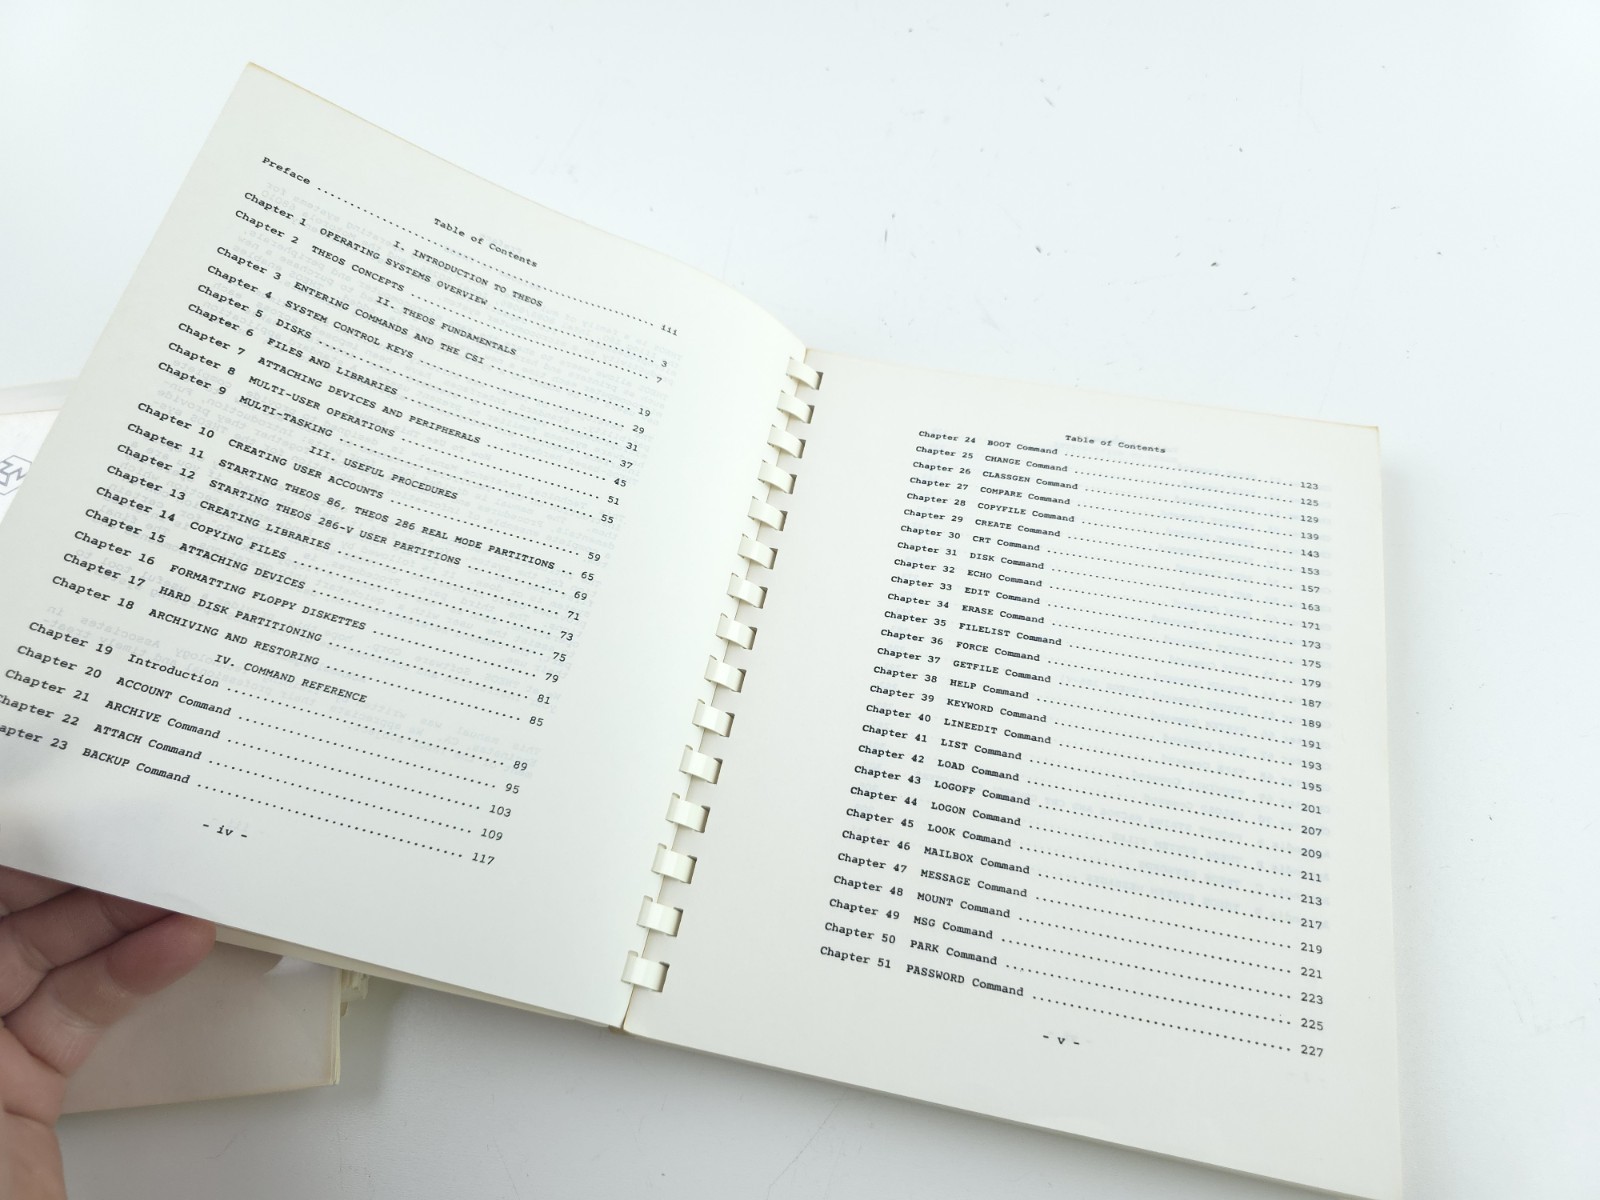 Table of Contents
Preface .......... iii
I. INTRODUCTION TO THEOS
Chapter 1 OPERATING SYSTEMS OVERVIEW .......... 3
Chapter 2 THEOS CONCEPTS .......... 7
II. THEOS FUNDAMENTALS
Chapter 3 ENTERING COMMANDS AND THE CSI .......... 19
Chapter 4 SYSTEM CONTROL KEYS .......... 29
Chapter 5 DISKS .......... 31
Chapter 6 FILES AND LIBRARIES .......... 37
Chapter 7 ATTACHING DEVICES AND PERIPHERALS .......... 45
Chapter 8 MULTI-USER OPERATIONS .......... 51
Chapter 9 MULTI-TASKING .......... 55
III. USEFUL PROCEDURES
Chapter 10 CREATING USER ACCOUNTS .......... 59
Chapter 11 STARTING THEOS 86, THEOS 286 REAL MODE PARTITIONS .. 65
Chapter 12 STARTING THEOS 286-V USER PARTITIONS .......... 69
Chapter 13 CREATING LIBRARIES .......... 71
Chapter 14 COPYING FILES .......... 73
Chapter 15 ATTACHING DEVICES .......... 75
Chapter 16 FORMATTING FLOPPY DISKETTES .......... 79
Chapter 17 HARD DISK PARTITIONING .......... 81
Chapter 18 ARCHIVING AND RESTORING .......... 85
IV. COMMAND REFERENCE
Chapter 19 Introduction .......... 89
Chapter 20 ACCOUNT Command .......... 95
Chapter 21 ARCHIVE Command .......... 103
Chapter 22 ATTACH Command .......... 109
apter 23 BACKUP Command .......... 117
- iv -
Table of Contents
Chapter 24 BOOT Command .......... 123
Chapter 25 CHANGE Command .......... 125
Chapter 26 CLASSGEN Command .......... 129
Chapter 27 COMPARE Command .......... 139
Chapter 28 COPYFILE Command .......... 143
Chapter 29 CREATE Command .......... 153
Chapter 30 CRT Command .......... 157
Chapter 31 DISK Command .......... 163
Chapter 32 ECHO Command .......... 171
Chapter 33 EDIT Command .......... 173
Chapter 34 ERASE Command .......... 175
Chapter 35 FILELIST Command .......... 179
Chapter 36 FORCE Command .......... 187
Chapter 37 GETFILE Command .......... 189
Chapter 38 HELP Command .......... 191
Chapter 39 KEYWORD Command .......... 193
Chapter 40 LINEEDIT Command .......... 195
Chapter 41 LIST Command .......... 201
Chapter 42 LOAD Command .......... 207
Chapter 43 LOGOFF Command .......... 209
Chapter 44 LOGON Command .......... 211
Chapter 45 LOOK Command .......... 213
Chapter 46 MAILBOX Command .......... 217
Chapter 47 MESSAGE Command .......... 219
Chapter 48 MOUNT Command .......... 221
Chapter 49 MSG Command .......... 223
Chapter 50 PARK Command .......... 225
Chapter 51 PASSWORD Command .......... 227
- v -